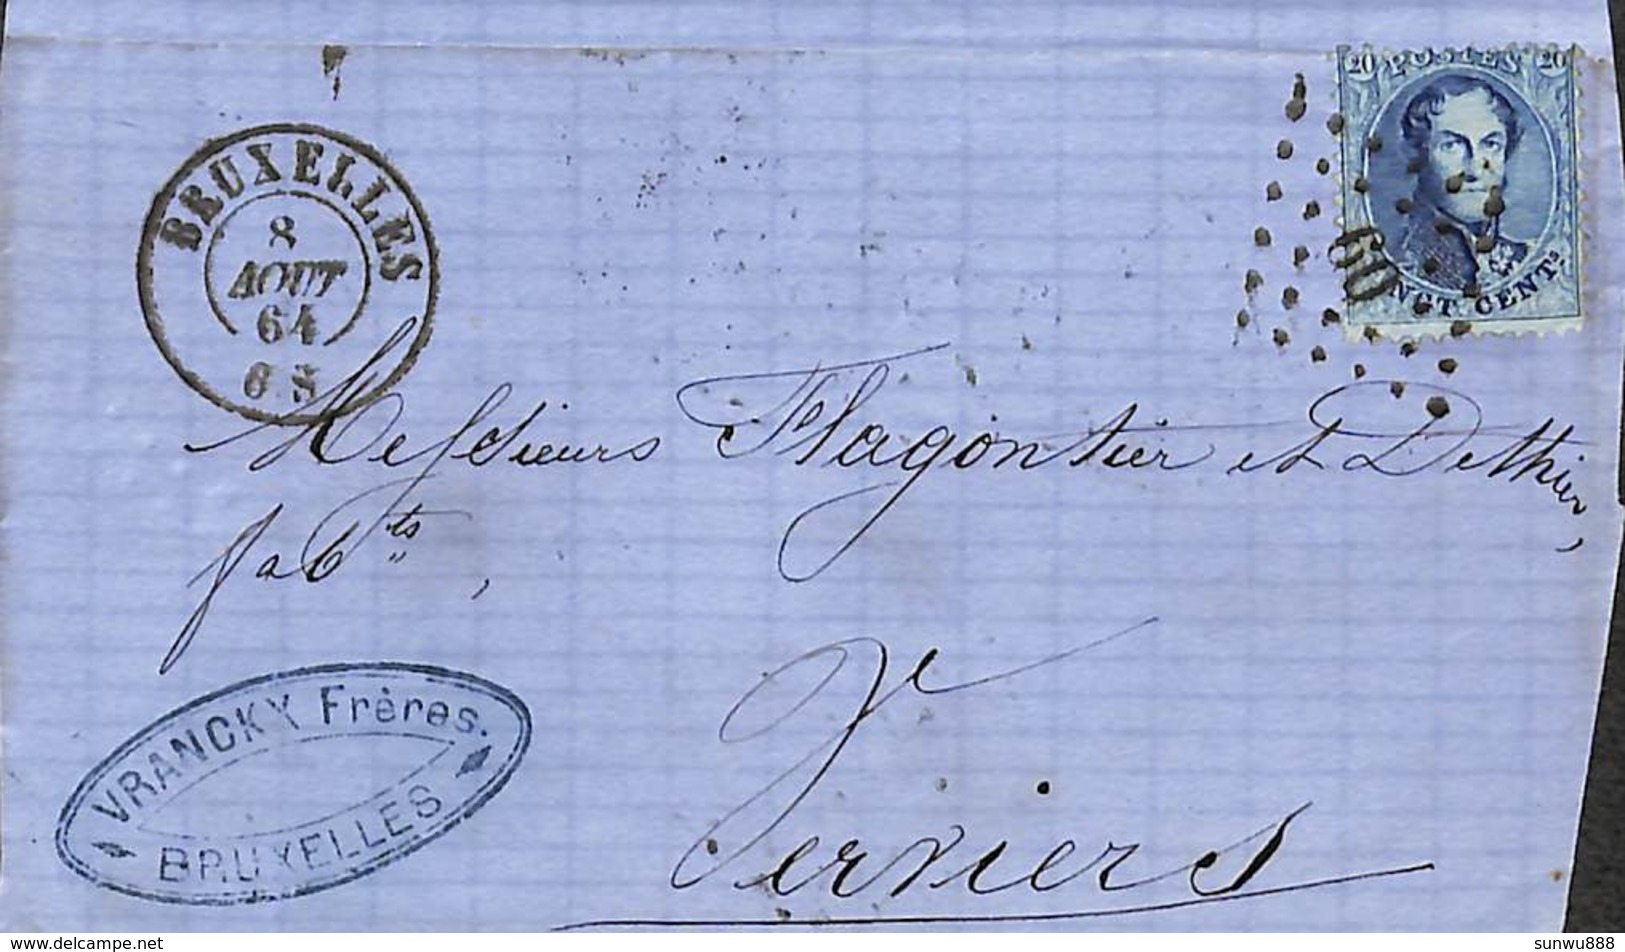 20 POSTES 20
60
VINGT CENTS
BRUXELLES
8
AOUT
64
6 S
Messieurs Flagontier et Dethier,
fabts,
Verviers
VRANCKX Frères.
BRUXELLES
www.delcampe.net
sunwu888